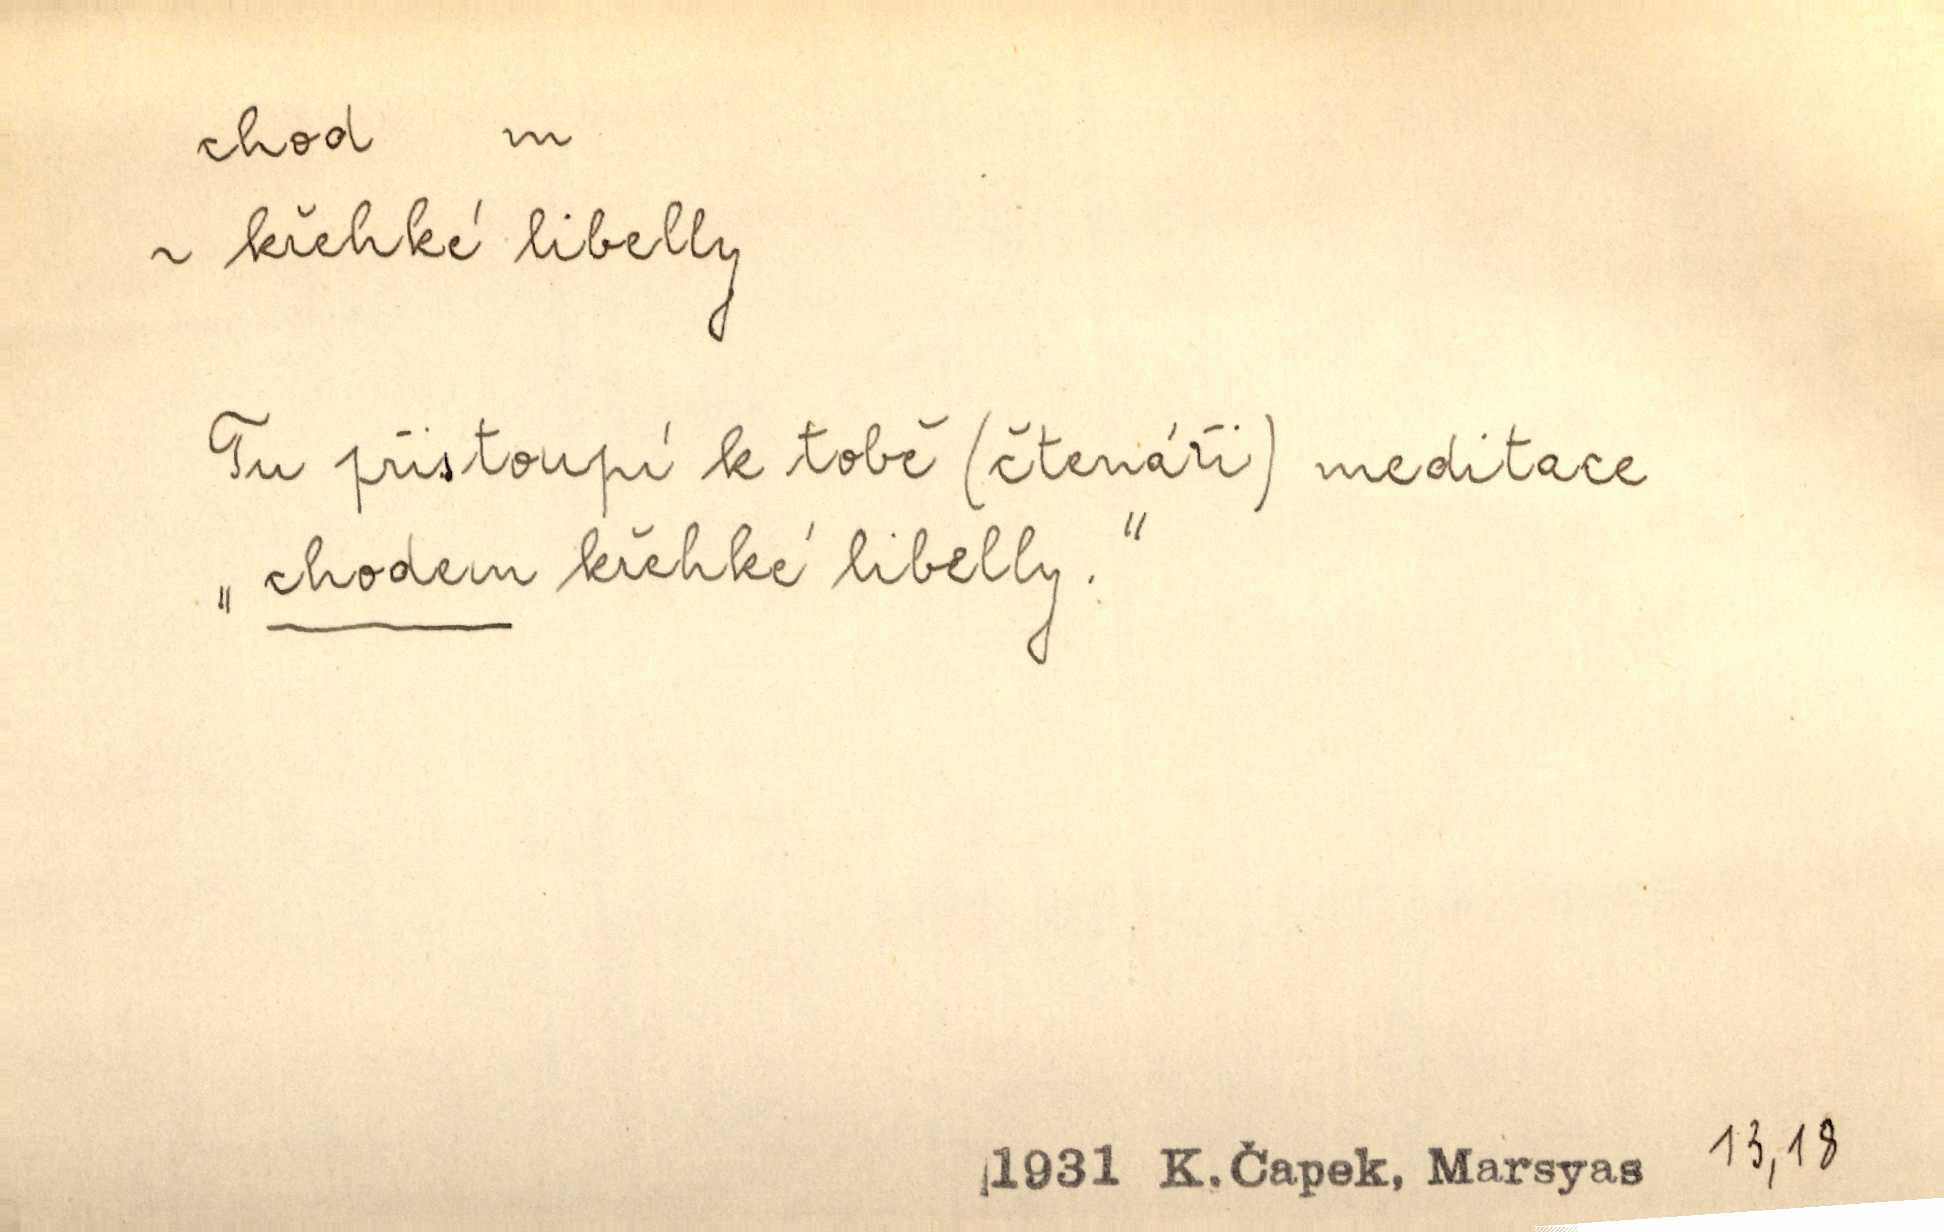 chod m
~ křehké libelly
Tu přistoupí k tobě (čtenáři) meditace
„chodem křehké libelly."
1931 K. Čapek, Marsyas 13,18